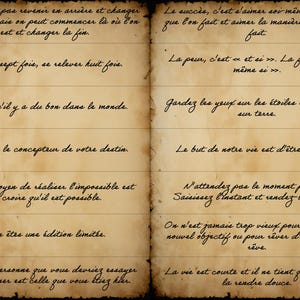 pas revenir en arrière et changer
mais on peut commencer là où l'on
est et changer la fin.
sept fois, se relever huit fois.
u'il y a du bon dans le monde.
le concepteur de votre destin.
oyen de réaliser l'impossible est
croire qu'il est possible.
s êtes une édition limitée.
ersonne que vous devriez essayer
er est celle que vous étiez hier.
Le succès, c'est s'aimer soi-mêm
que l'on fait et aimer la manière
fait.
La peur, c'est « et si ». La f
même si ».
Gardez les yeux sur les étoiles
sur terre.
Le but de notre vie est d'être
N'attendez pas le moment p
Saisissez l'instant et rendez-
On n'est jamais trop vieux pour
nouvel objectif ou pour rêver d
rêve.
La vie est courte et il ne tient q
la rendre douce.